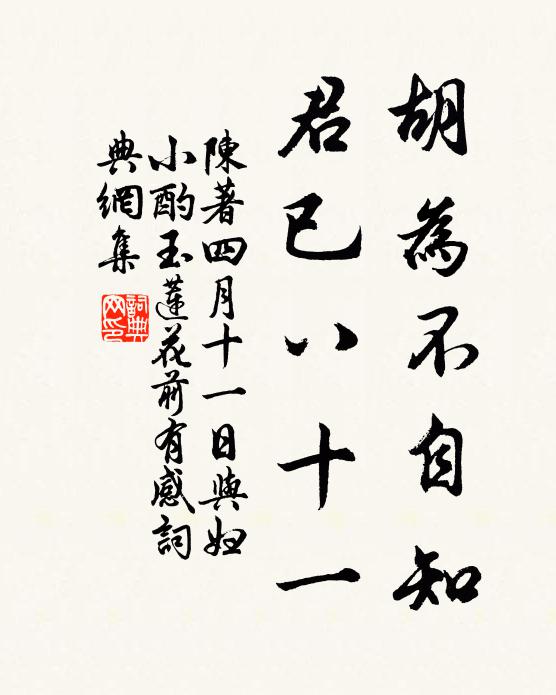 胡為不自知
君已八十一
陳著四月十一日與妇
小酌玉蓮花前有感詞
典網集
詞典网印